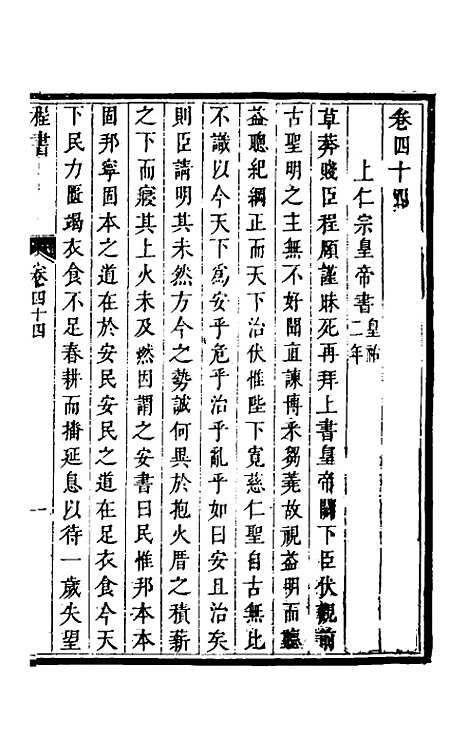 卷四十四
上仁宗皇帝書皇祐二年
草莽賤臣程頤謹昧死再拜上書皇帝闕下臣伏觀前
古聖明之主無不好聞直諫博釆芻蕘故視益明而聽
益聰紀綱正而天下治伏惟陛下寛慈仁聖自古無比
不識以今天下爲安乎危乎治乎亂乎如曰安且治矣
則臣請明其未然方今之勢誠何異於抱火厝之積薪
之下而寢其上火未及然因謂之安書曰民惟邦本本
固邦寧固本之道在於安民安民之道在足衣食今天
下民力匱竭衣食不足春耕而播延息以待一歲失望
程書
卷四十四
一